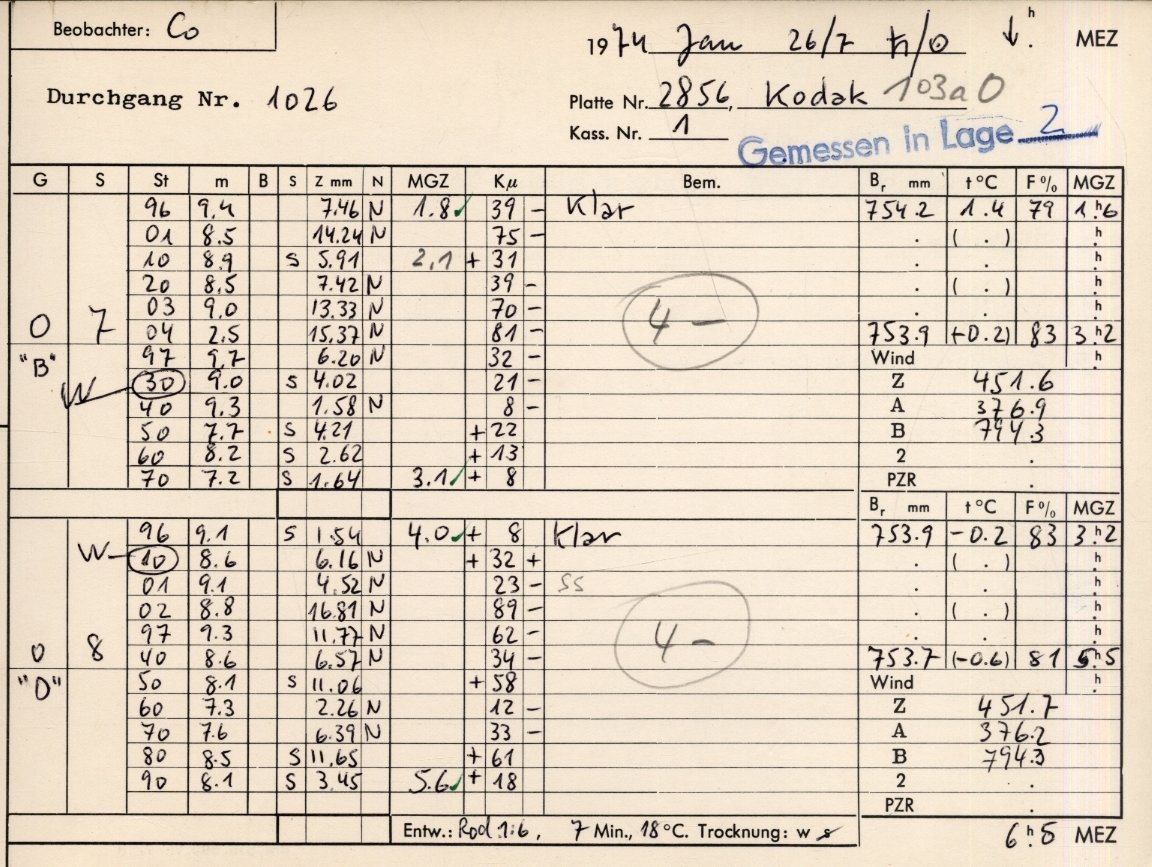 Beobachter: Co
1974 Jan 26/7 ♄/☉ ↓ . h MEZ
Durchgang Nr. 1026
Platte Nr. 2856, Kodak 103aO
Kass. Nr. 1
Gemessen in Lage 2
G S St m B S Z mm N MGZ Kμ Bem. Br mm t°C F% MGZ
96 9.4 7.46 N 1.8✓ 39 – Klar 754.2 1.4 79 1h.6
01 8.5 14.24 N 75 – . ( . ) h.
10 8.9 S 5.91 2,1 + 31 . . h.
20 8.5 7.42 N 39 – . ( . ) h.
03 9.0 13.33 N 70 – . . h.
O 7 04 2.5 15.37 N 81 – 4 – 753.9 (-0.2) 83 3h.2
"B" 97 9.7 6.20 N 32 – Wind h.
W 30 9.0 S 4.02 21 – Z 451.6
40 9.3 1.58 N 8 – A 376.9
50 7.7 S 4.21 + 22 B 794.3
60 8.2 S 2.62 + 13 2 .
70 7.2 S 1.64 3.1✓ + 8 PZR .
Br mm t°C F% MGZ
96 9.1 S 1.54 4.0✓ + 8 Klar 753.9 -0.2 83 3h.2
W 10 8.6 6.16 N + 32 + . ( . ) h.
01 9.1 4.52 N 23 – SS . . h.
02 8.8 16.81 N 89 – . ( . ) h.
97 9.3 11.77 N 62 – . . h.
O 8 40 8.6 6.57 N 34 – 4 – 753.7 (-0.6) 81 5h.5
"D" 50 8.1 S 11.06 + 58 Wind h.
60 7.3 2.26 N 12 – Z 451.7
70 7.6 6.39 N 33 – A 376.2
80 8.5 S 11.65 + 61 B 794.3
90 8.1 S 3.45 5.6✓ + 18 2 .
PZR .
Entw.: Rod 1:6, 7 Min., 18°C. Trocknung: w s
6h.5 MEZ